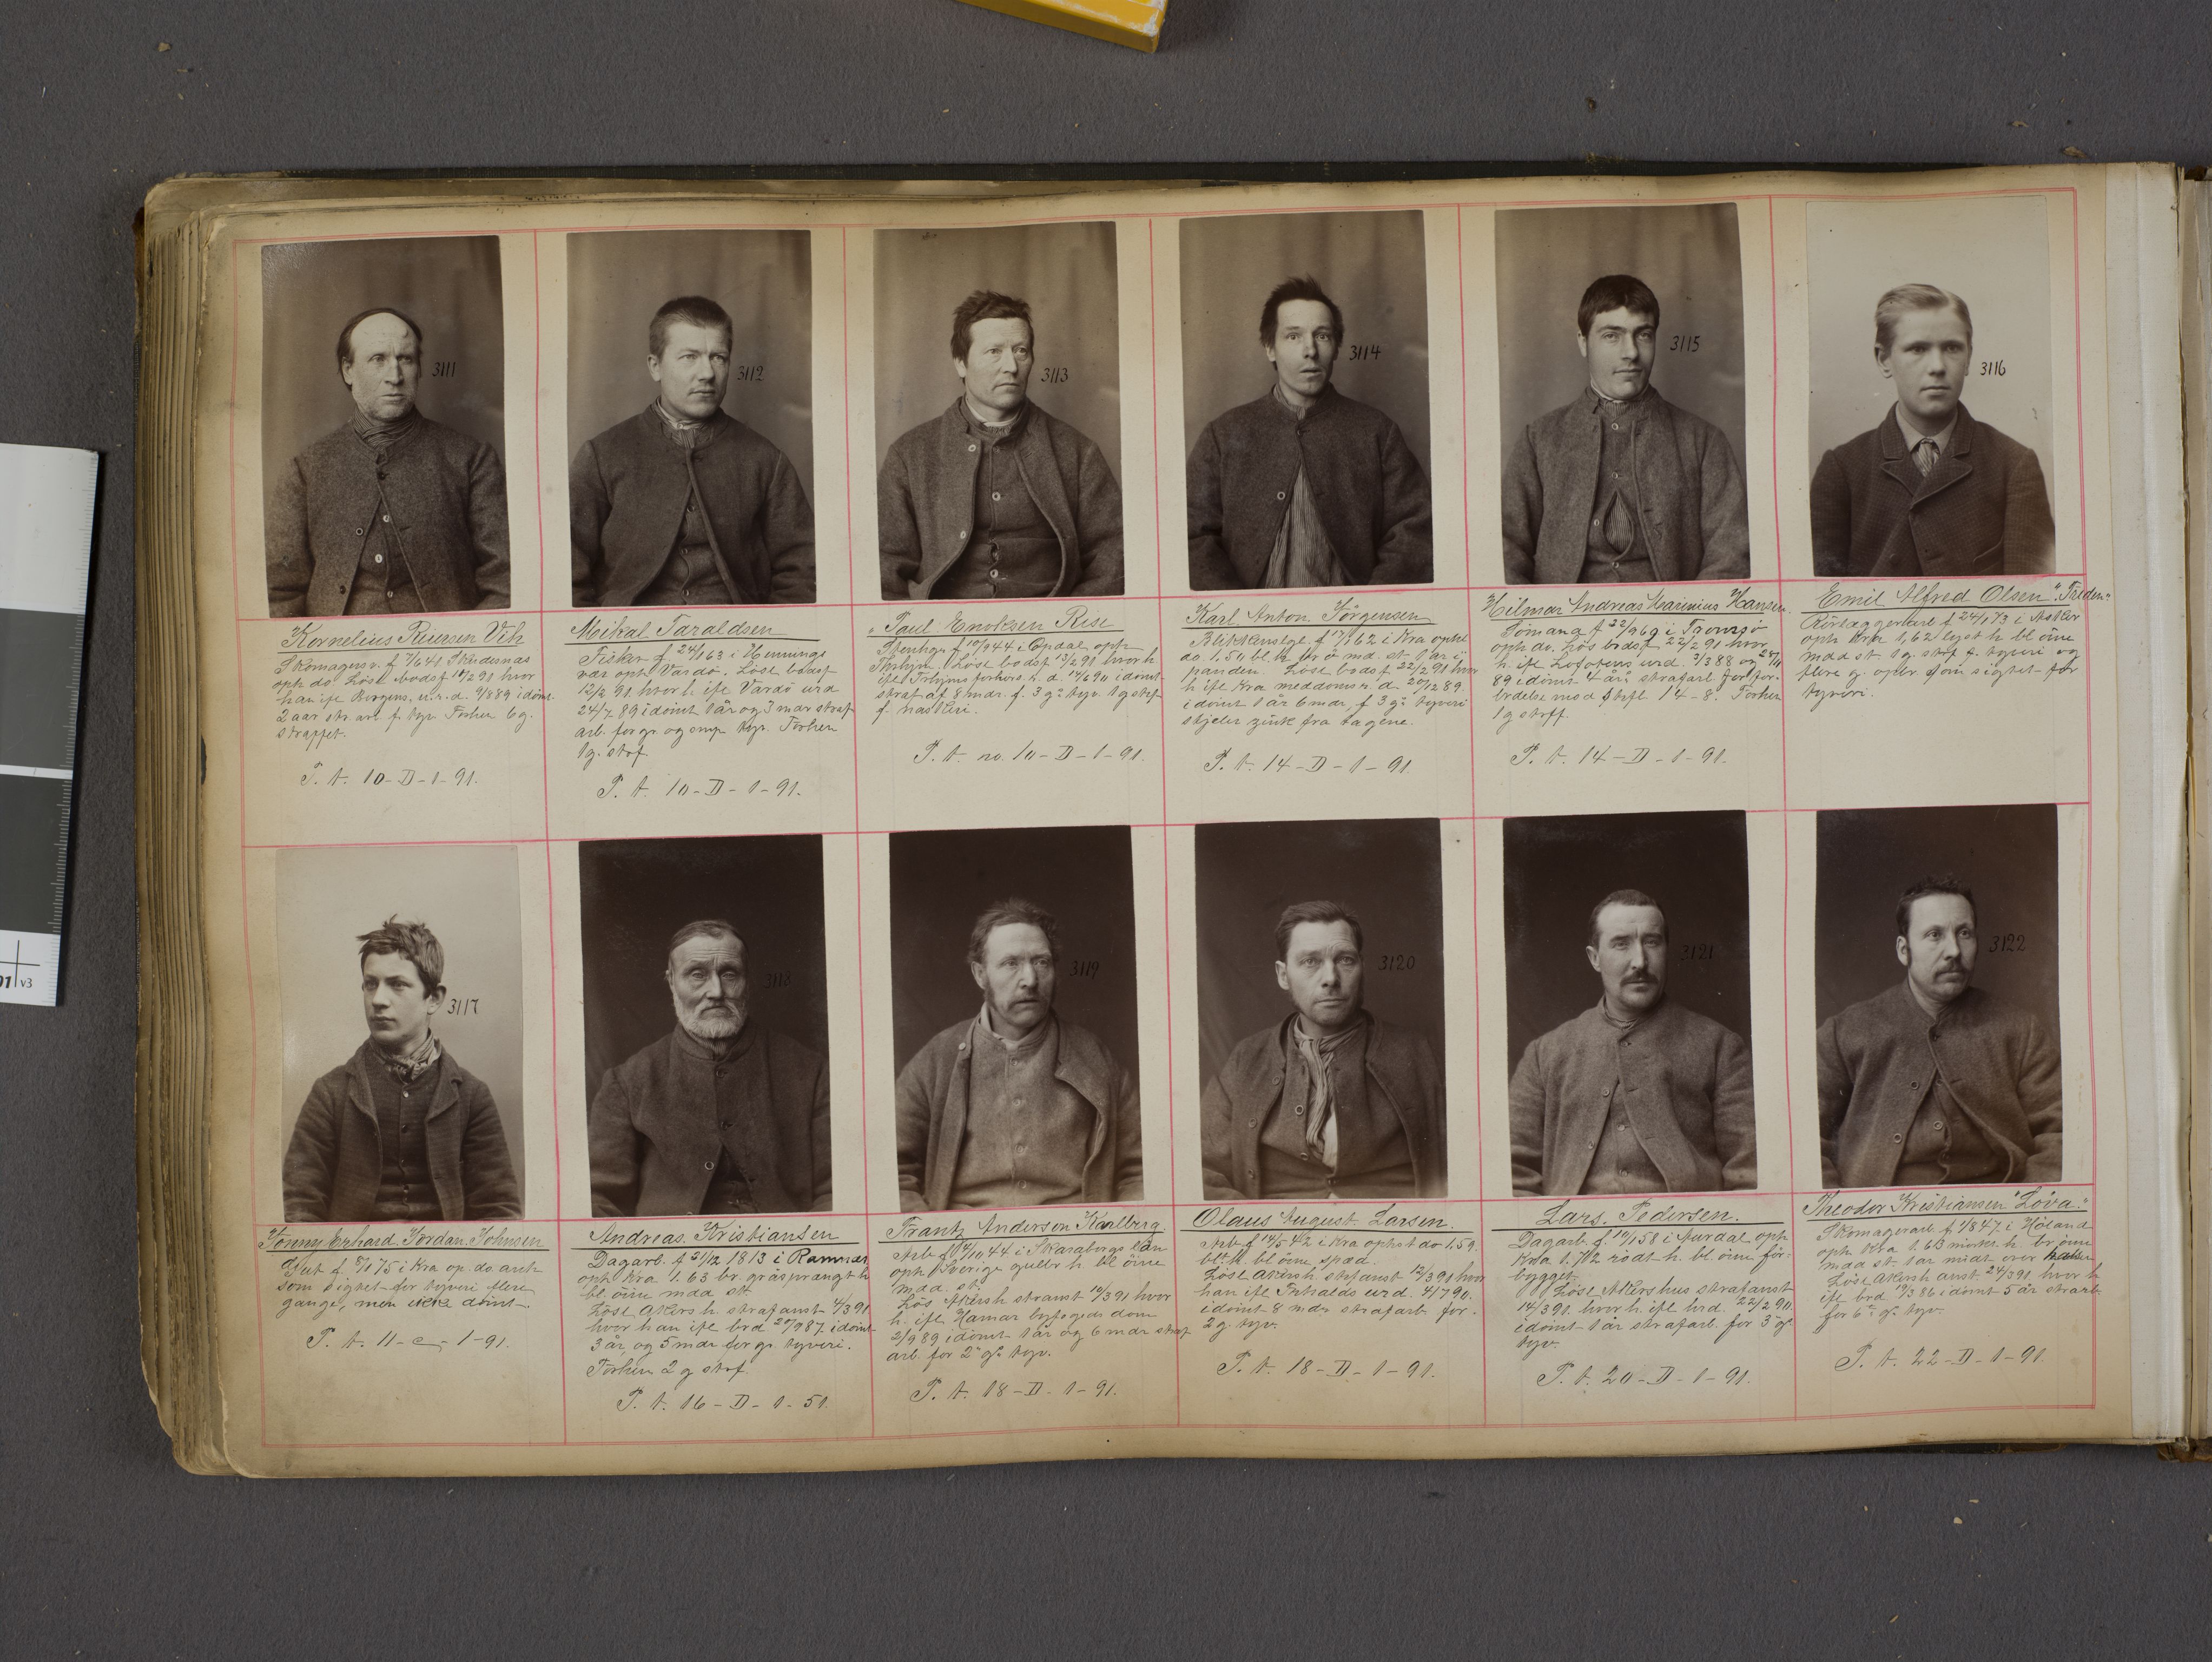 3111
Kornelius Riersen Vik
Skomagersv. f 7/6 41 Skudesnæs
oph do Löse bodsf 10/2 91 hvor
han ifl Bergens u.r.d. 9/8 89 idömt
2 aar str. arb f. tyv Forhen 6 g.
straffet.
P. t. 10-D-1-91.
3112
Mikal Taraldsen
Fisker f 24/1 63 i Hennings
vær oph Vardö. Löse bodsf
12/2 91 hvor h ifl Vardö urd
24/7 89 idömt 1 år og 3 mdr straf
arb. for gr. og smp tyv. Forhen
1 g. strf
P. t. 10-D-1-91.
3113
Paul Enoksen Rise
f 10/9 44 i Opdal oph
Löse bodsf 13/2 91 hvor h.
idömt
straf af 8 mdr. f. 3 g. tyv. 1 g strf
f. naskeri.
P. t. no. 10-D-1-91.
3114
Karl Anton Jörgensen
f 17/1 62 i Kra opht
do. 1,50 bl. h. br ö md. st. 1 ar i
panden. Löse bodsf 22/2 91 hvor
h ifl Kra meddomsr. d 20/12 89.
idömt 1 år 6 mdr, f 3 g. tyveri
stjeler zink fra tagene.
P. t. 14-D-1-91.
3115
Hilmar Andreas Marinius Hansen.
Sömand f 22/9 69 i Tromsö
oph do. Lös bodsf 22/2 91 hvor
h. ifl Lofotens urd. 3/3 88 og 28/11
89 idömt 4 års strafarb for for-
brydelse mod 14-8. Forhen
1 g strff.
P. t. 14-D-1-91.
3116
Emil Alfred Olsen "Freden"
Rörlæggerlære f 24/1 73 i Asker
oph Kra 1,62 lyst h bl öine
mdd st 1 g. strf f. tyveri og
flere g. opbr som sigtet for
tyveri.
3117
Jonny Erhard Jordan Johnsen
Gut f. 5/1 75 i Kra op. do arrh
som sigtet for tyveri flere
gange, men ikke dömt
P. t. 11-c-1-91.
3118
Andreas Kristiansen
Dagarb. f 21/12 1813 i Ramnæs
oph Kra 1.63 br gråsprængt h
bl öine mdd stt
Löst Akersh. strafanst 4/3 91
hvor han ifl brd 29/9 87. idömt
3 år, og 5 mdr for gr. tyveri.
Forhen 2 g strf.
P. t. 16-D-1-51.
3119
Frantz Anderson Karlberg.
Arb f 14/10 44 i Skaraborgs län
oph Sverige gullbr h. bl öine
mdd. st.
Lös Akersh stranst 10/3 91 hvor
h. ifl Hamar byfogds dom
2/9 89 idömt 1 år og 6 mdr straf
arb. for 2. g. tyv.
P. t. 18-D-1-91.
3120
Olaus August Larsen.
Arb f 14/5 42 i Kra ophot do 1.59.
blt. h. bl öine spæd.
Löst Akersh strfanst 12/3 91 hvor
han ifl urd. 4/7 90.
idömt 8 mdr strafarb for.
2 g. tyv.
P. t. 18-D-1-91.
3121
Lars Pedersen.
Dagarb. f. 10/1 58 i Aurdal oph
Kra 1.72 rödt h. bl öine for-
bygget.
Löst Akershus strafanst
14/3 91. hvor h. ifl hrd. 22/2 90.
idömt 1 år strafarb. for 3. g.
tyv.
P. t. 20-D-1-91.
3122
Theodor Kristiansen "Löva."
Skomagerarb. f 1/8 47 i Höland
oph Kra 1.63 mörkt h. br öine
mdd st. 1 ar midt over
Löst Akersh anst. 24/3 91 hvor h
ifl brd 19/3 86 idömt 5 år strarb
for 6. g. tyv.
P. t. 22-D-1-91.